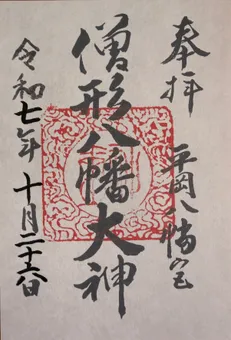 奉拝
平岡八幡宮
僧形八幡大神
令和七年
十月二十六日